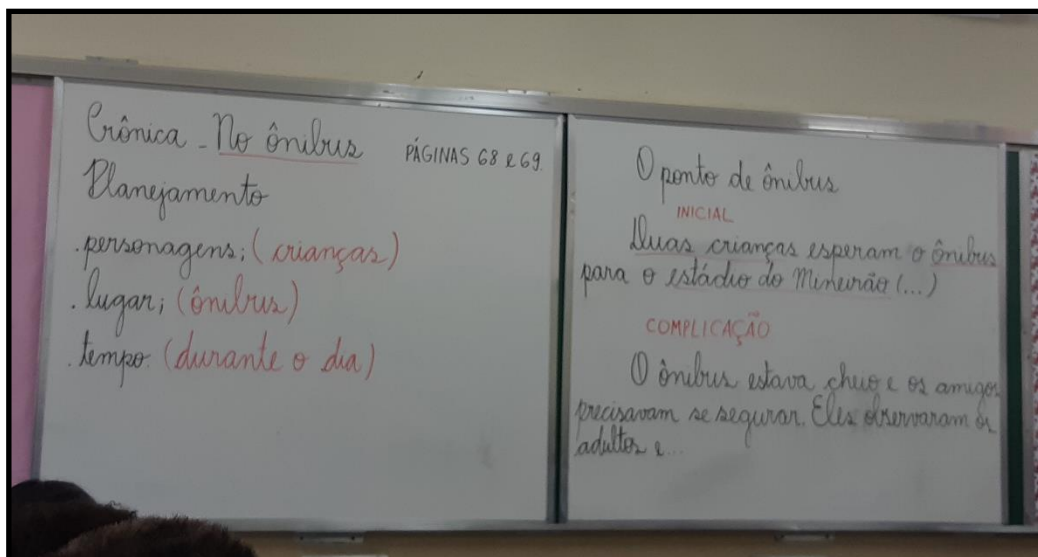 Crônica - No ônibus
PÁGINAS 68 e 69.
Planejamento
. personagens; (crianças)
. lugar; (ônibus)
. tempo. (durante o dia)
O ponto de ônibus
INICIAL
Duas crianças esperam o ônibus
para o estádio do Mineirão (...)
COMPLICAÇÃO
O ônibus estava cheio e os amigos
precisavam se segurar. Eles observaram os
adultos e...